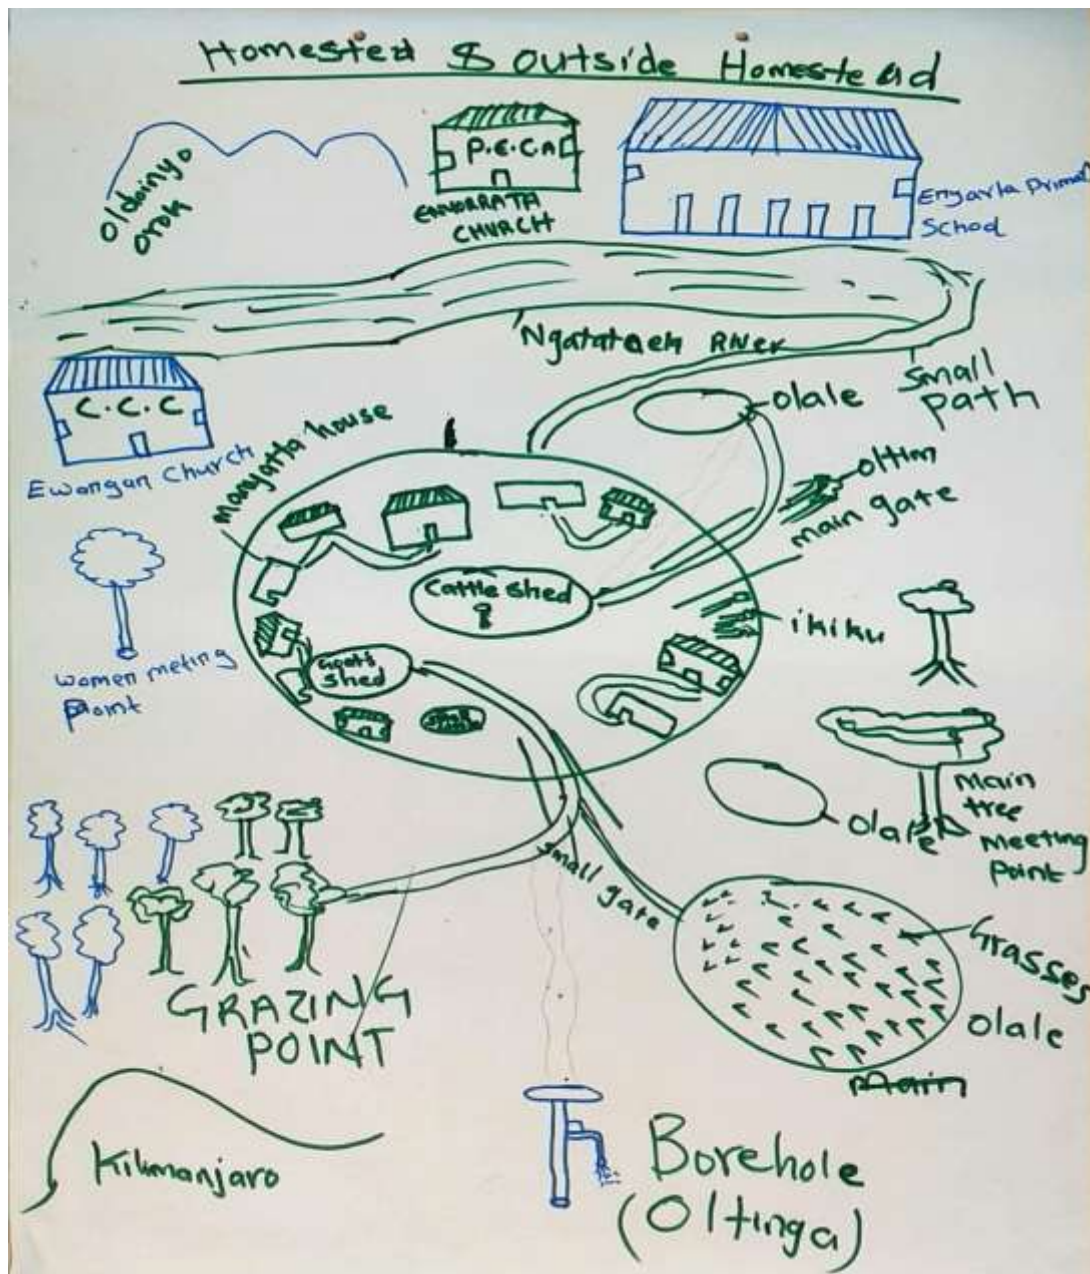 Homested & outside Homestead
Oldoinyo
orok
P.E.C.A
ENVORRATH
CHURCH
Engarla Primary
School
Ngatataek River
small
path
C.C.C
Ewangan Church
manyatta house
olale
oltim
main gate
Cattle shed
ikiku
Goats
shed
women meting
Point
Main
tree
Meeting
Point
olale
small gate
Grasses
GRAZING
POINT
Olale
Main
Kilimanjaro
Borehole
(Oltinga)